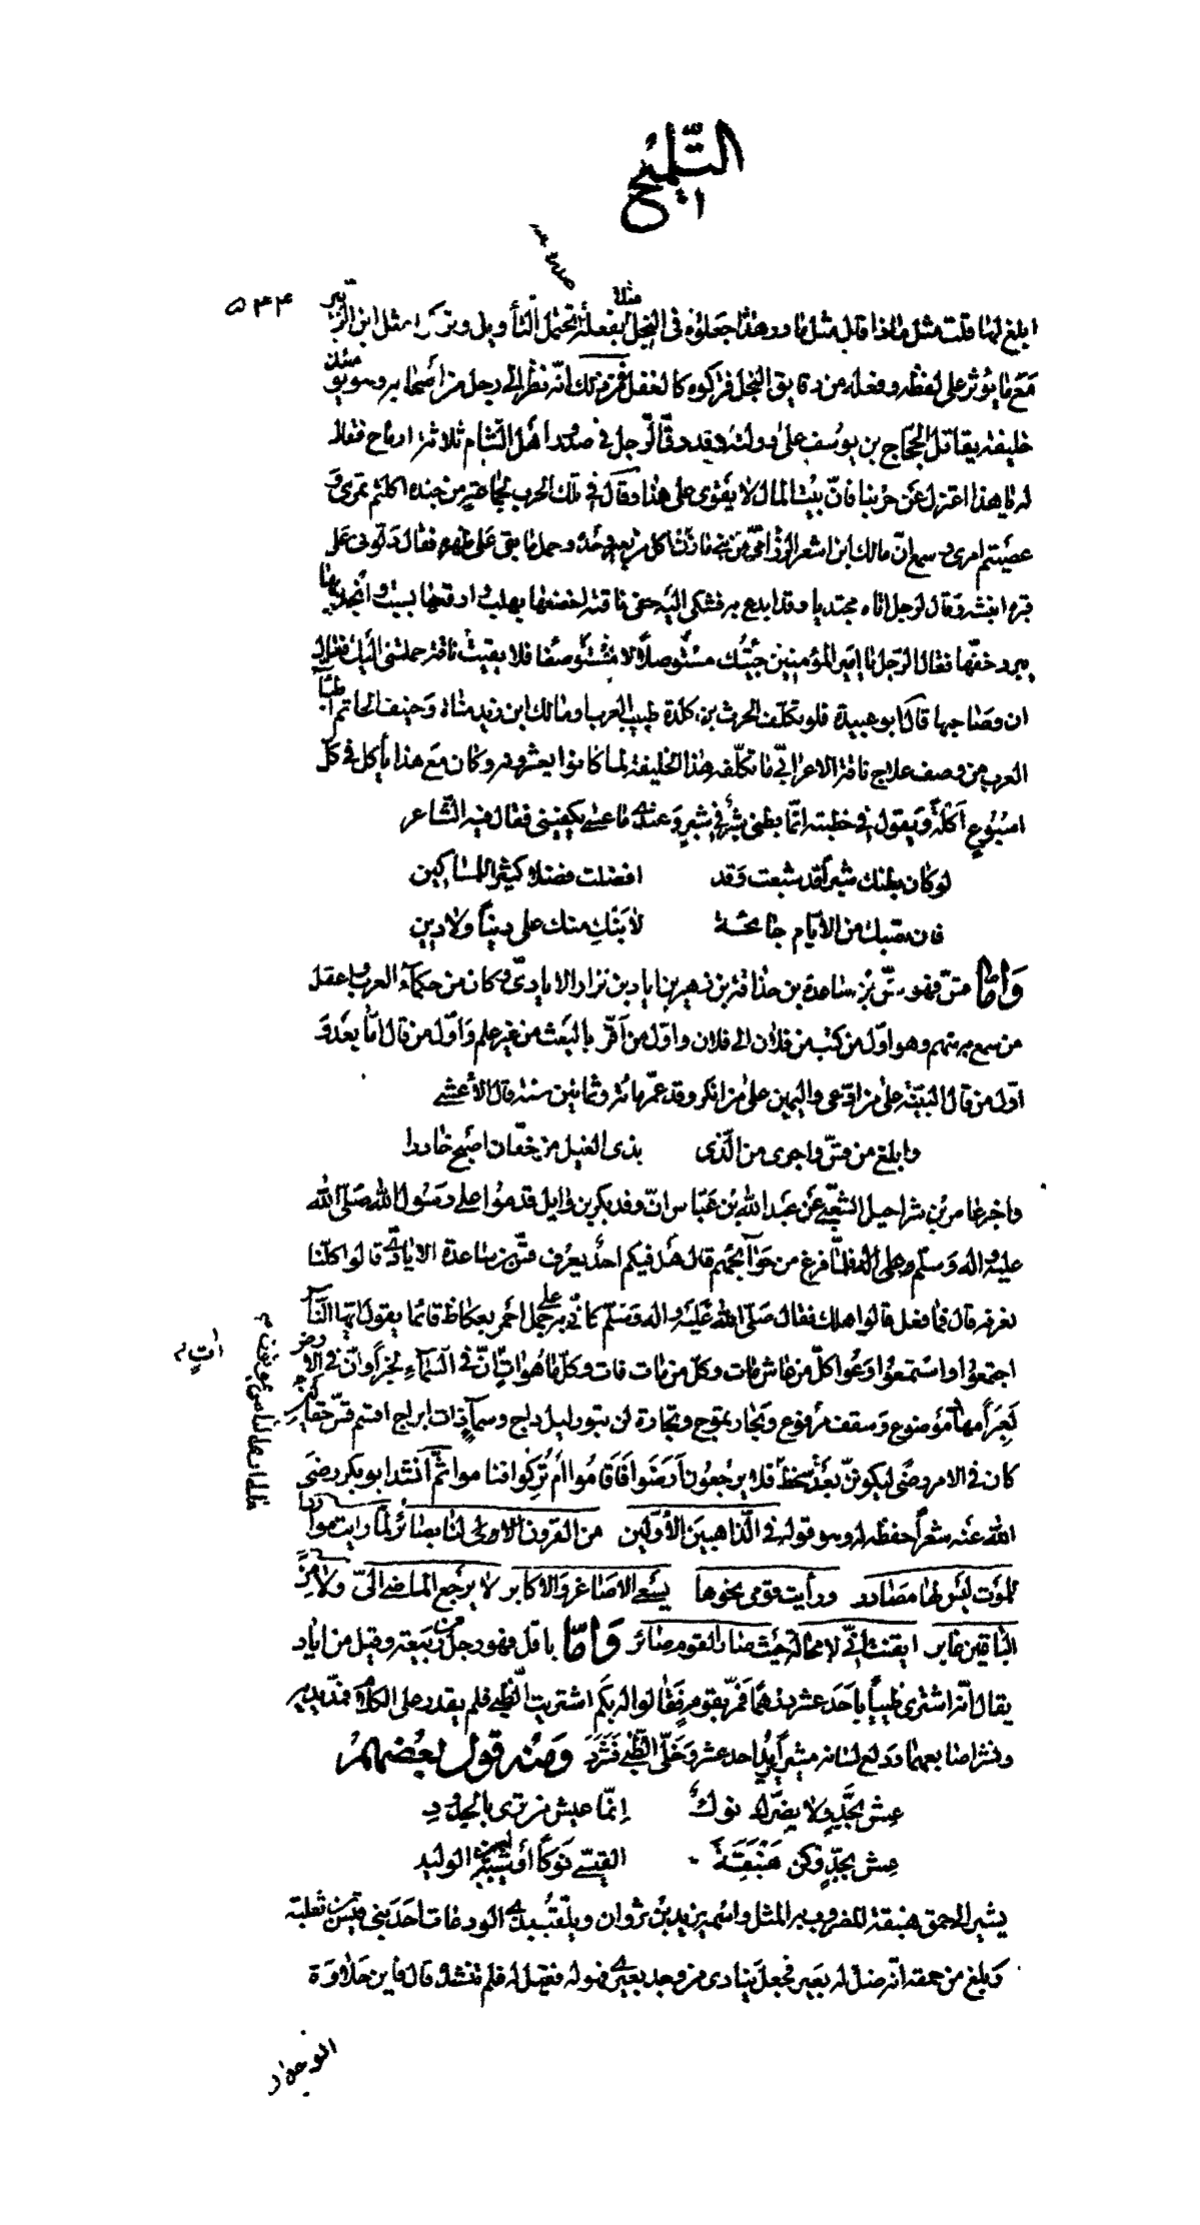 التلميح
٥٤٤
ابلغ لها قلت مثل ماذا قال مثل مادر هذا جعلوه فى البخل بفعلة تحتمل التأويل وتركوا مثل ابن الزبير
مع ما يؤثر على لفظه وفعله من دقايق البخل فتركوه كالغفل فمن ذلك انه نظر الى رجل من اصحابه وهو يومئذ
خليفة يقاتل الحجاج بن يوسف على دولته وقد دق الرجل فى صدور اهل الشام ثلاثة ارماح فقال
له يا هذا اعتزل عن حربنا فان بيت المال لا يقوى على هذا وقال فى تلك الحرب لجماعة من جنده اكلتم تمرى و
عصيتم امرى وسمع ان مالك ابن اشعر الرزامى من بنى مازن اكل من بعير وحده وحمل ما بقى على ظهره فقال دلونى على
قبره انبشه وقال لرجل اتاه مجتديا وقد ابدع به فشكى اليه حفى ناقته اخصفها بهلب وارقعها بسبت وانجد بها
يبرد خفها فقال الرجل يا امير المؤمنين جئتك مستوصلا لا مستوصفا فلا بقيت ناقة حملتنى اليك فقال
ان وصاحبها قال ابو عبيدة فلو تكلف الحرث بن كلدة طبيب العرب او مالك ابن زيد مناة وحنيف الحاتم اطبا
العرب من وصف علاج ناقة الاعرابى ما تكلفه هذا الخليفة لما كانوا يعشرونه وكان مع هذا يأكل فى كل
اسبوع اكلة ويقول فى خطبته انما بطنى شبر فى شبر وعندى ما عسى يكفينى فقال فيه الشاعر
لو كان بطنك شبرا قد شبعت وقد افضلت فضلا كثيرا للمساكين
فان تصبك من الايام جائحة لا نبك منك على دنيا ولا دين
واما قس فهو قس بن ساعدة بن حذافة بن زهير بن اياد بن نزار الايادى وكان من حكماء العرب واعقل
من سمع به منهم وهو اول من كتب من فلان الى فلان واول من اقر بالبعث من غير علم واول من قال اما بعد و
اول من قال البينة على من ادعى واليمين على من انكر وقد عمر مائة وثمانين سنة قال الاعشى
وابلغ من قس واجرى من الذى بذى الغيل من خفان اصبح خادرا
واخبر عامر بن شراحيل الشعبى عن عبد الله بن عباس ان وفد بكر بن وايل قدموا على رسول الله صلى الله
عليه واله وسلم فلما فرغ من حوائجهم قال هل فيكم احد يعرف قس بن ساعدة الايادى قالوا كلنا
نعرفه قال فما فعل قالوا هلك فقال صلى الله عليه واله وسلم كانى به على جمل احمر بعكاظ قائما يقول ايها الناس
اجتمعوا واستمعوا وعوا كل من عاش مات وكل من مات فات وكل ما هو ات ات ان فى السماء لخبرا وان فى الارض
لعبرا مهاد موضوع وسقف مرفوع وبحار تموج وتجارة لن تبور ليل داج وسماء ذات ابراج اقسم قس حقا
كان فى الامر رضى ليكونن بعده سخط فلا يرجعون ارضوا فاقاموا ام تركوا فناموا ثم انشد ابو بكر رضى
الله عنه شعرا حفظه له وهو قوله فى الذاهبين الأولين من القرون الاولى لنا بصائر لما رايت مواردا
للموت ليس لها مصادر ورأيت قومى نحوها يسعى الاصاغر والاكابر لا يرجع الماضى الى ولا من
الباقين غابر ايقنت انى لا محالة حيث صار القوم صائر واما باقل فهو رجل من ربيعة وقيل من اياد
يقال انه اشترى ظبيا باحد عشر درهما فمر بقوم فقالوا له بكم اشتريت الظبى فلم يقدر على الكلام فمد يديه
ونشر اصابعهما ودلع لسانه مشيرا باحد عشر وخلى الظبى فشرد ومنه قول بعضهم
عش بجد ولا يضرك نوك انما عيش من ترى بالجدود
عش بجد وكن هنبقة القيسى نوكا او شيبة بن الوليد
يشير الى حمق هنبقة المضروب به المثل واسمه يزيد بن ثروان ويلقب بذى الودعات احد بنى قيس بن ثعلبة
وبلغ من حمقه انه ضل له بعير فجعل ينادى من وجد بعيرى فهو له فقيل له فلم تنشده قال فاين حلاوة
الوجدان